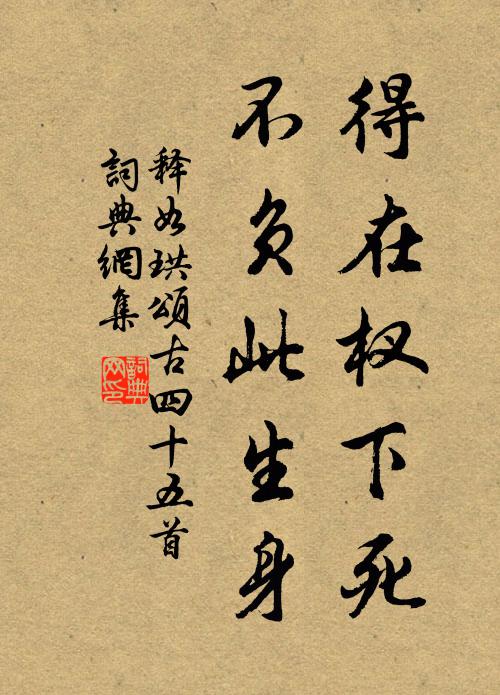 得在杈下死
不负此生身
释如珙頌古四十五首
詞典網集
詞典
网印